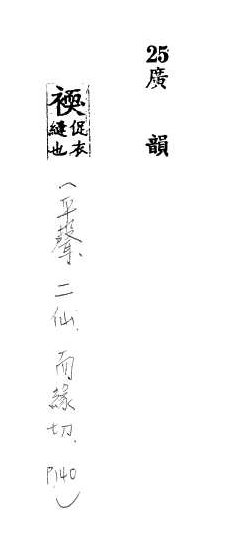 25
廣韻
促衣
縫也
（平聲、二仙、而緣切、P.140）